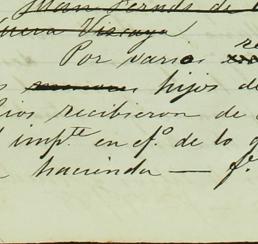 Juan Fernds de
Nueva Vizcaya
Por varios re
hijos de
dios recibieron de
impte en efo de lo q
hacienda — f.